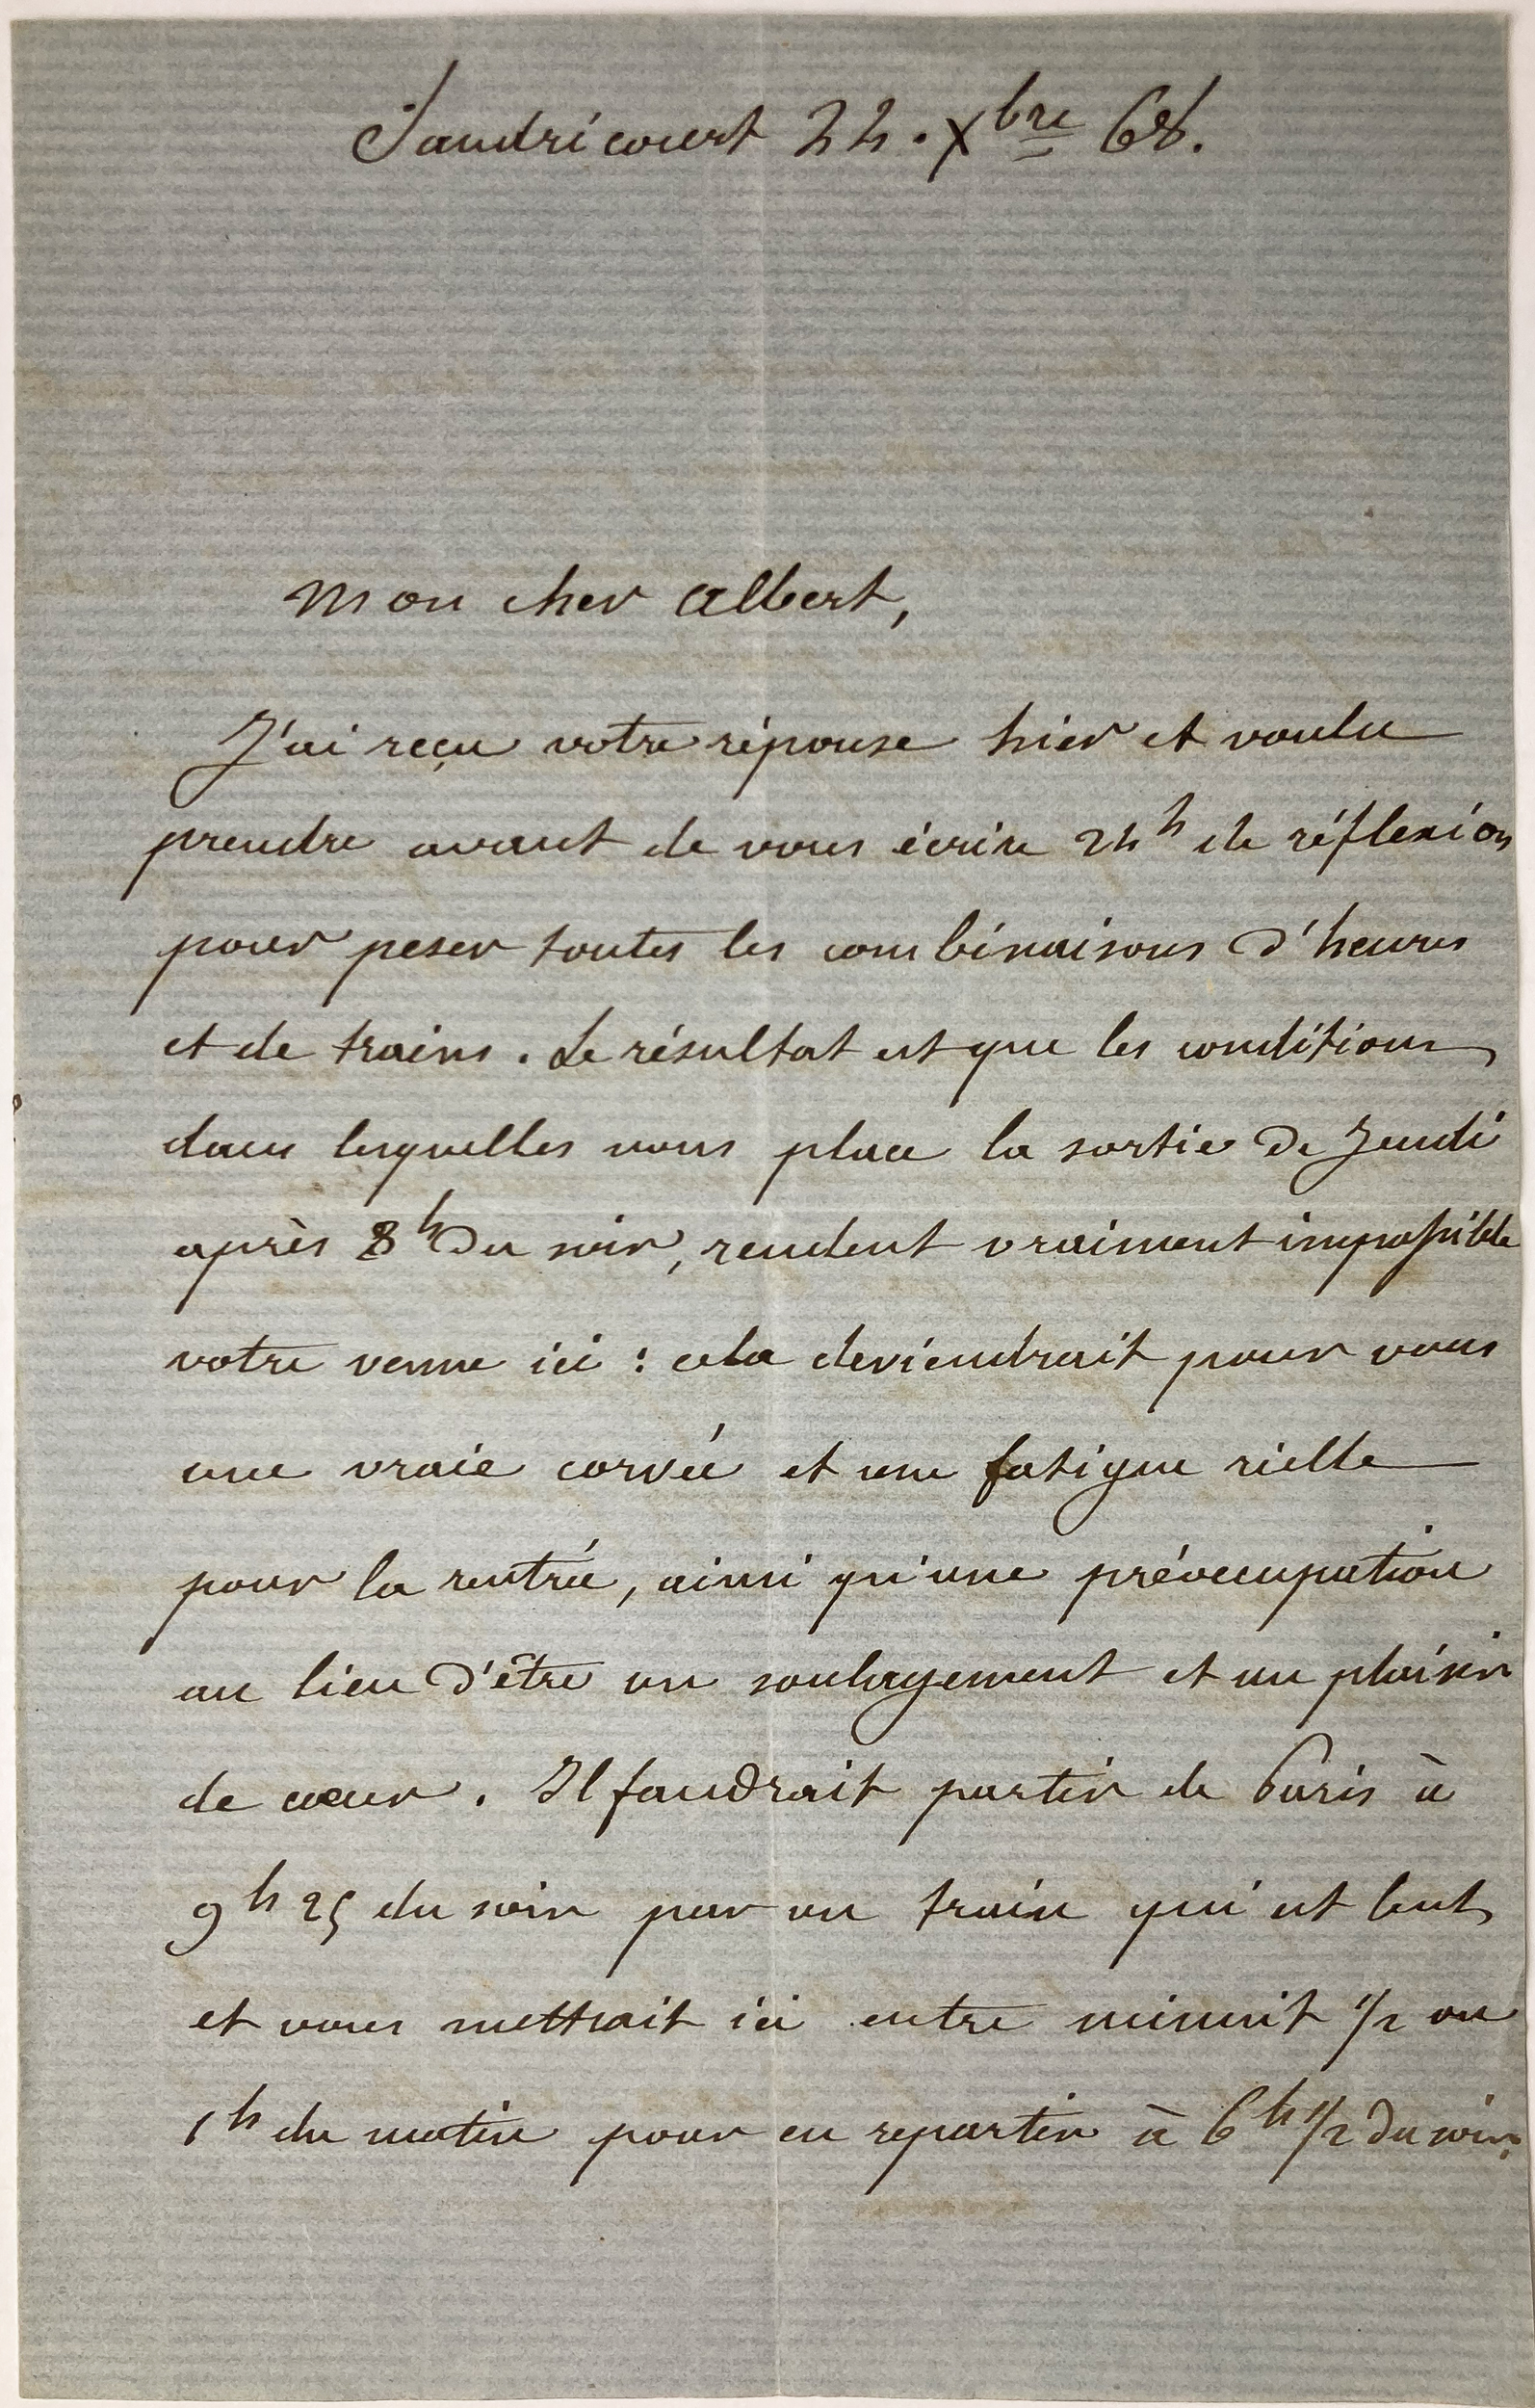 Sandricourt 22. Xbre 68.
Mon cher Albert,
J'ai reçu votre réponse hier et voulu
prendre avant de vous écrire 24h de réflexion
pour peser toutes les combinaisons d'heures
et de trains. Le résultat est que les conditions
dans lesquelles vous place la sortie de Jeudi
après 8h du soir, rendent vraiment impossible
votre venue ici : cela deviendrait pour vous
une vraie corvée et une fatigue réelle
pour la rentrée, ainsi qu'une préoccupation
au lieu d'être un soulagement et un plaisir
de cœur. Il faudrait partir de Paris à
9h 25 du soir par un train qui est lent
et vous mettrait ici entre minuit 1/2 ou
1h du matin pour en repartir à 6h 1/2 du soir.